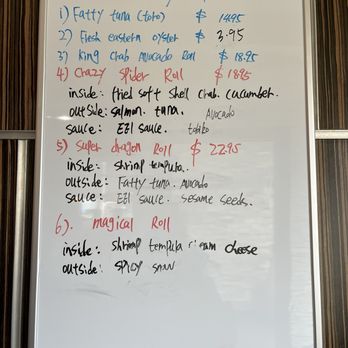 1) Fatty tuna (toro) $ 14.95
2) Fresh eastern oyster $ 3.95
3) King Crab Avocado Roll $ 18.95
4) Crazy Spider Roll $ 18.95
inside: fried soft shell crab. cucumber.
outside: salmon. tuna. Avocado
sauce: EEl sauce. tobiko
5) Super dragon Roll $ 22.95
inside: shrimp tempura.
outside: Fatty tuna. Avocado
sauce: EEl sauce. sesame seeds.
6). magical Roll
inside: shrimp tempura cream cheese
outside: spicy